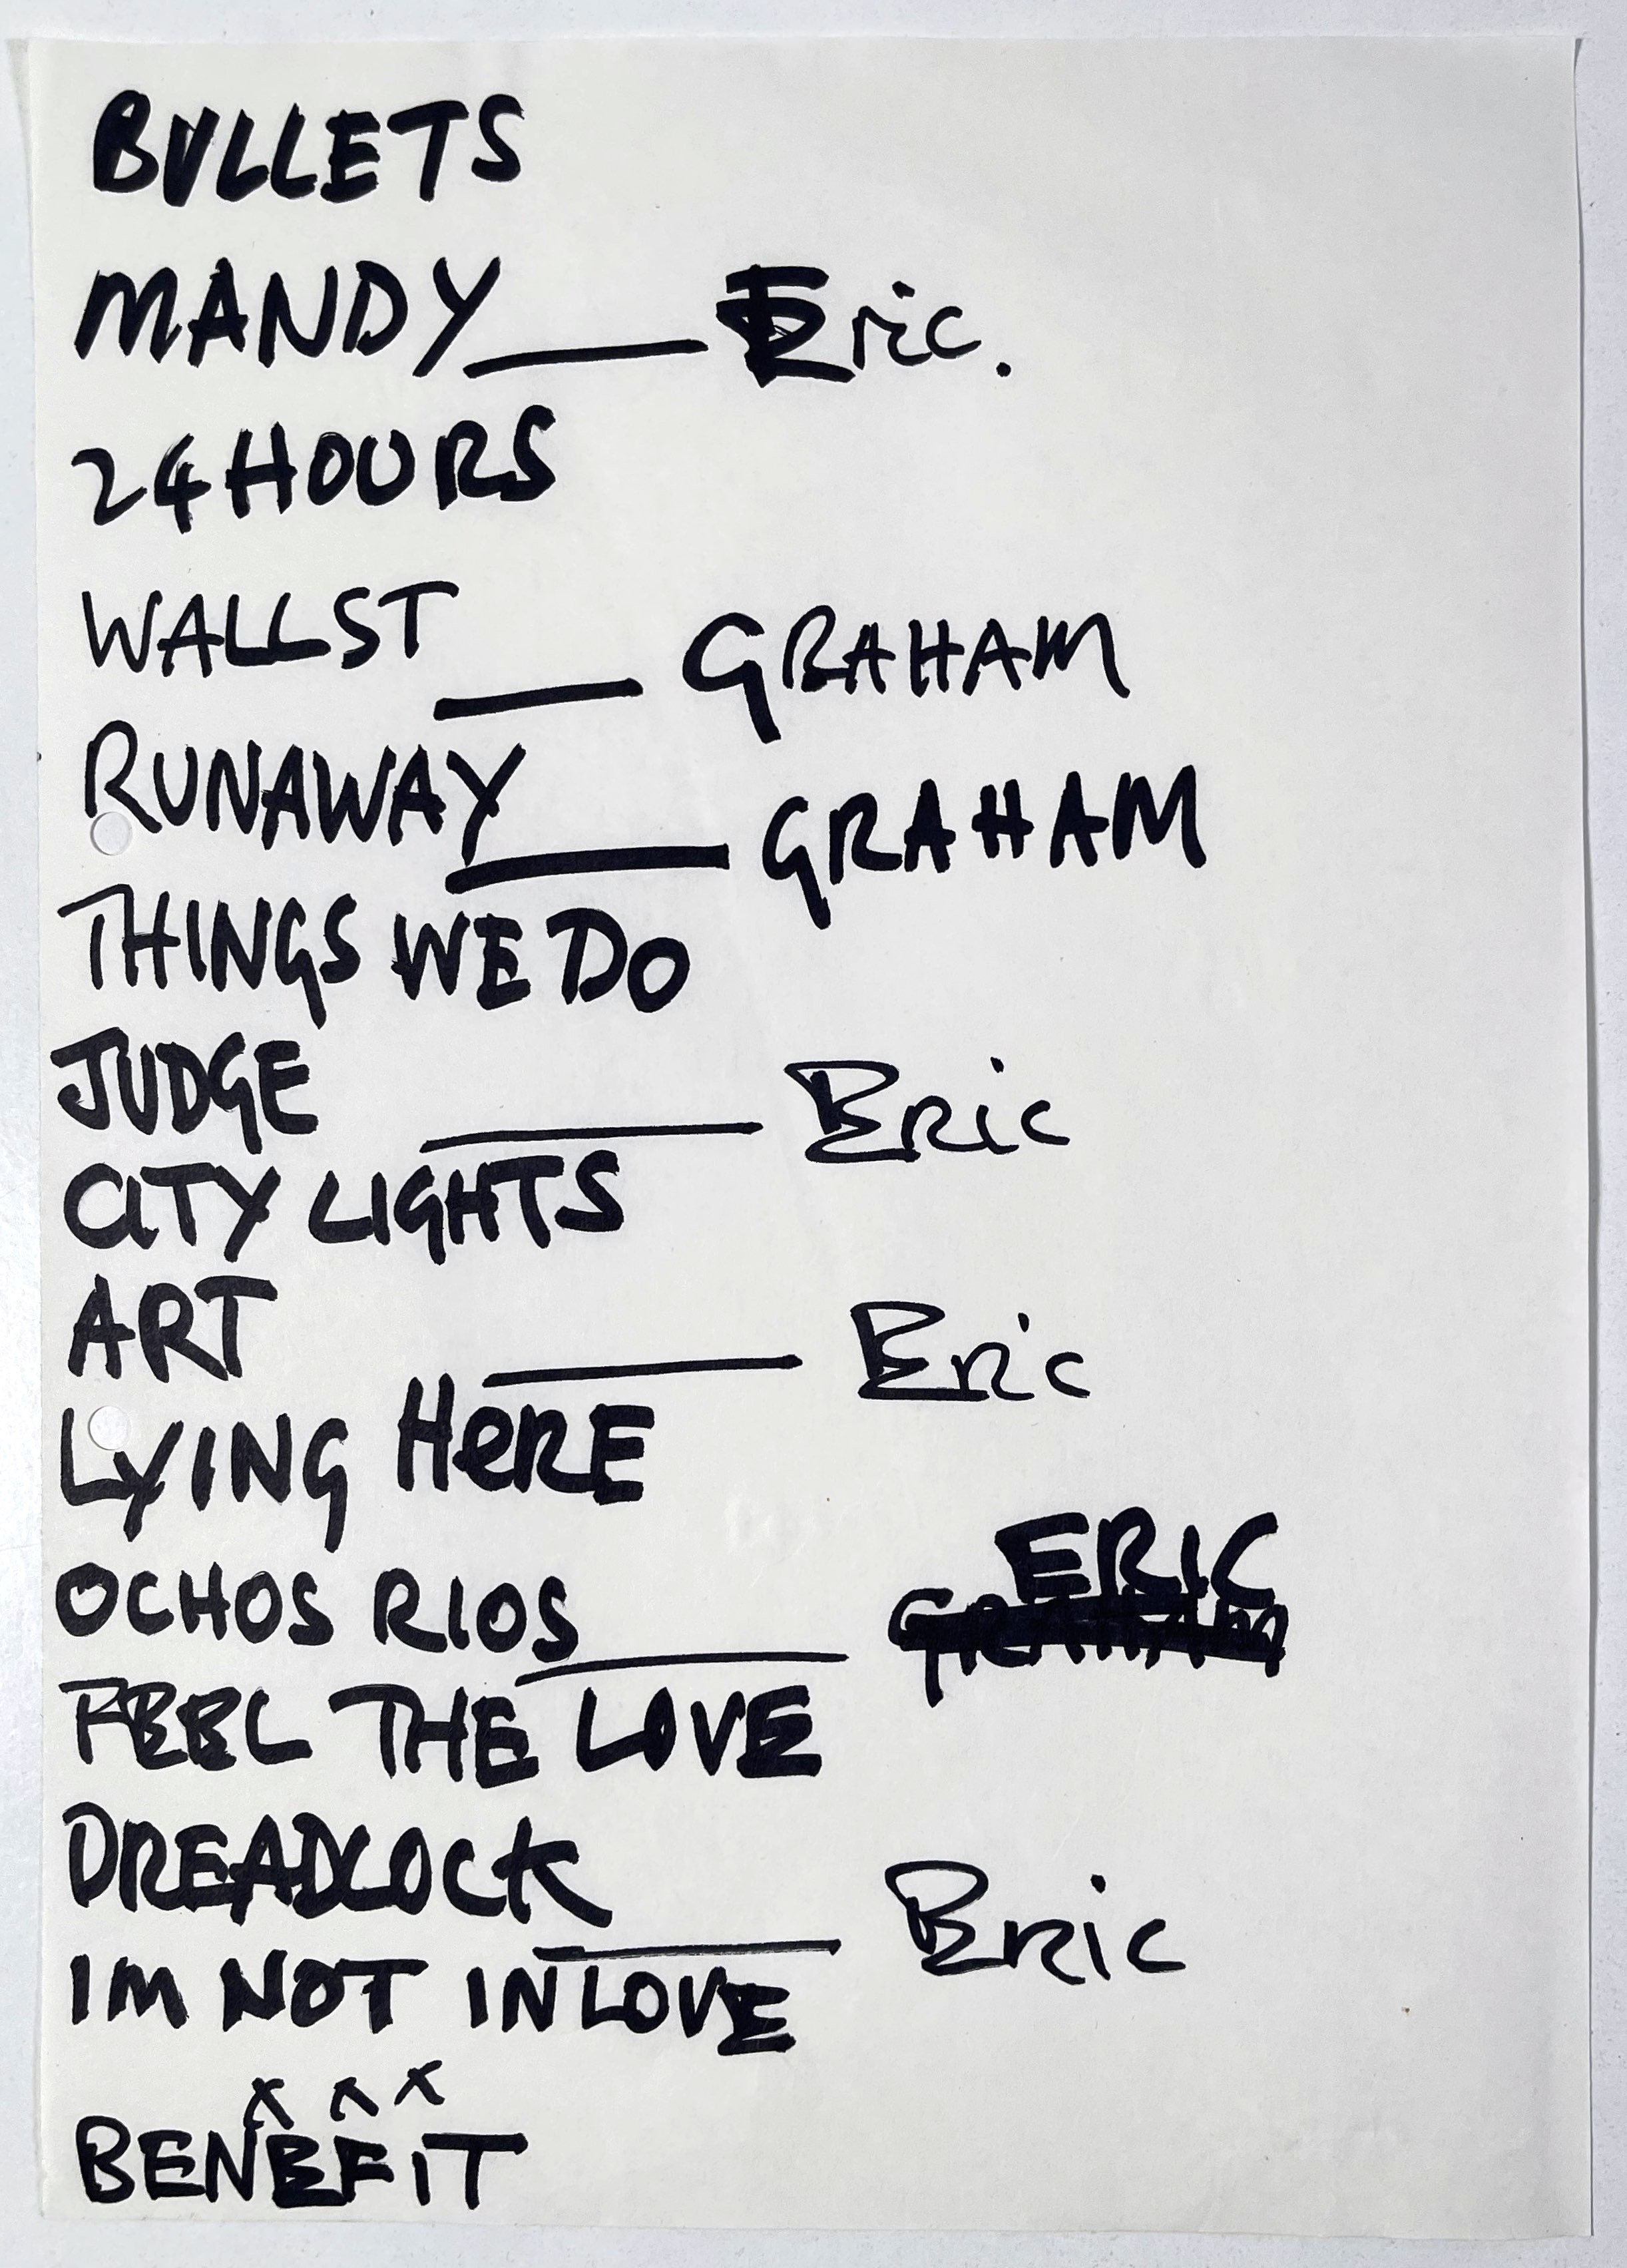 BULLETS
MANDY — Eric.
24 HOURS
WALL ST — GRAHAM
RUNAWAY — GRAHAM
THINGS WE DO
JUDGE — Eric
CITY LIGHTS
ART — Eric
LYING HeRE
ERIC
OCHOS RIOS — GRAHAM
FEEL THE LOVE
DREADLOCK — Eric
IM NOT IN LOVE
x x x
BENEFIT